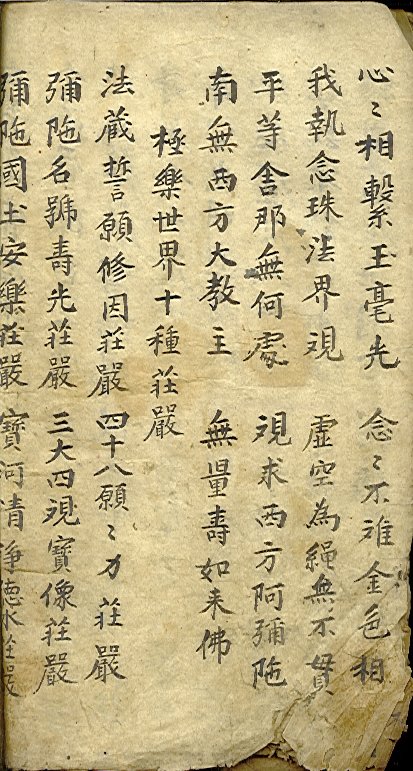 心〻相繫玉毫光　念〻不難金色相
我執念珠法界視　虛空為繩無不貫
平等舍那無何處　視求西方阿彌陁
南無西方大教主　無量壽如来佛
極樂世界十種莊嚴
法蔵誓願修因莊嚴　四十八願〻力莊嚴
彌陁名號壽光莊嚴　三大四視寶像莊嚴
彌陁國土安樂莊嚴　寶河清淨德水莊嚴